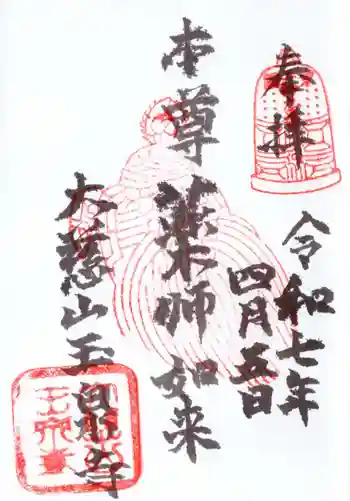 奉拝
令和七年
四月五日
本尊 薬師如来
大慈山